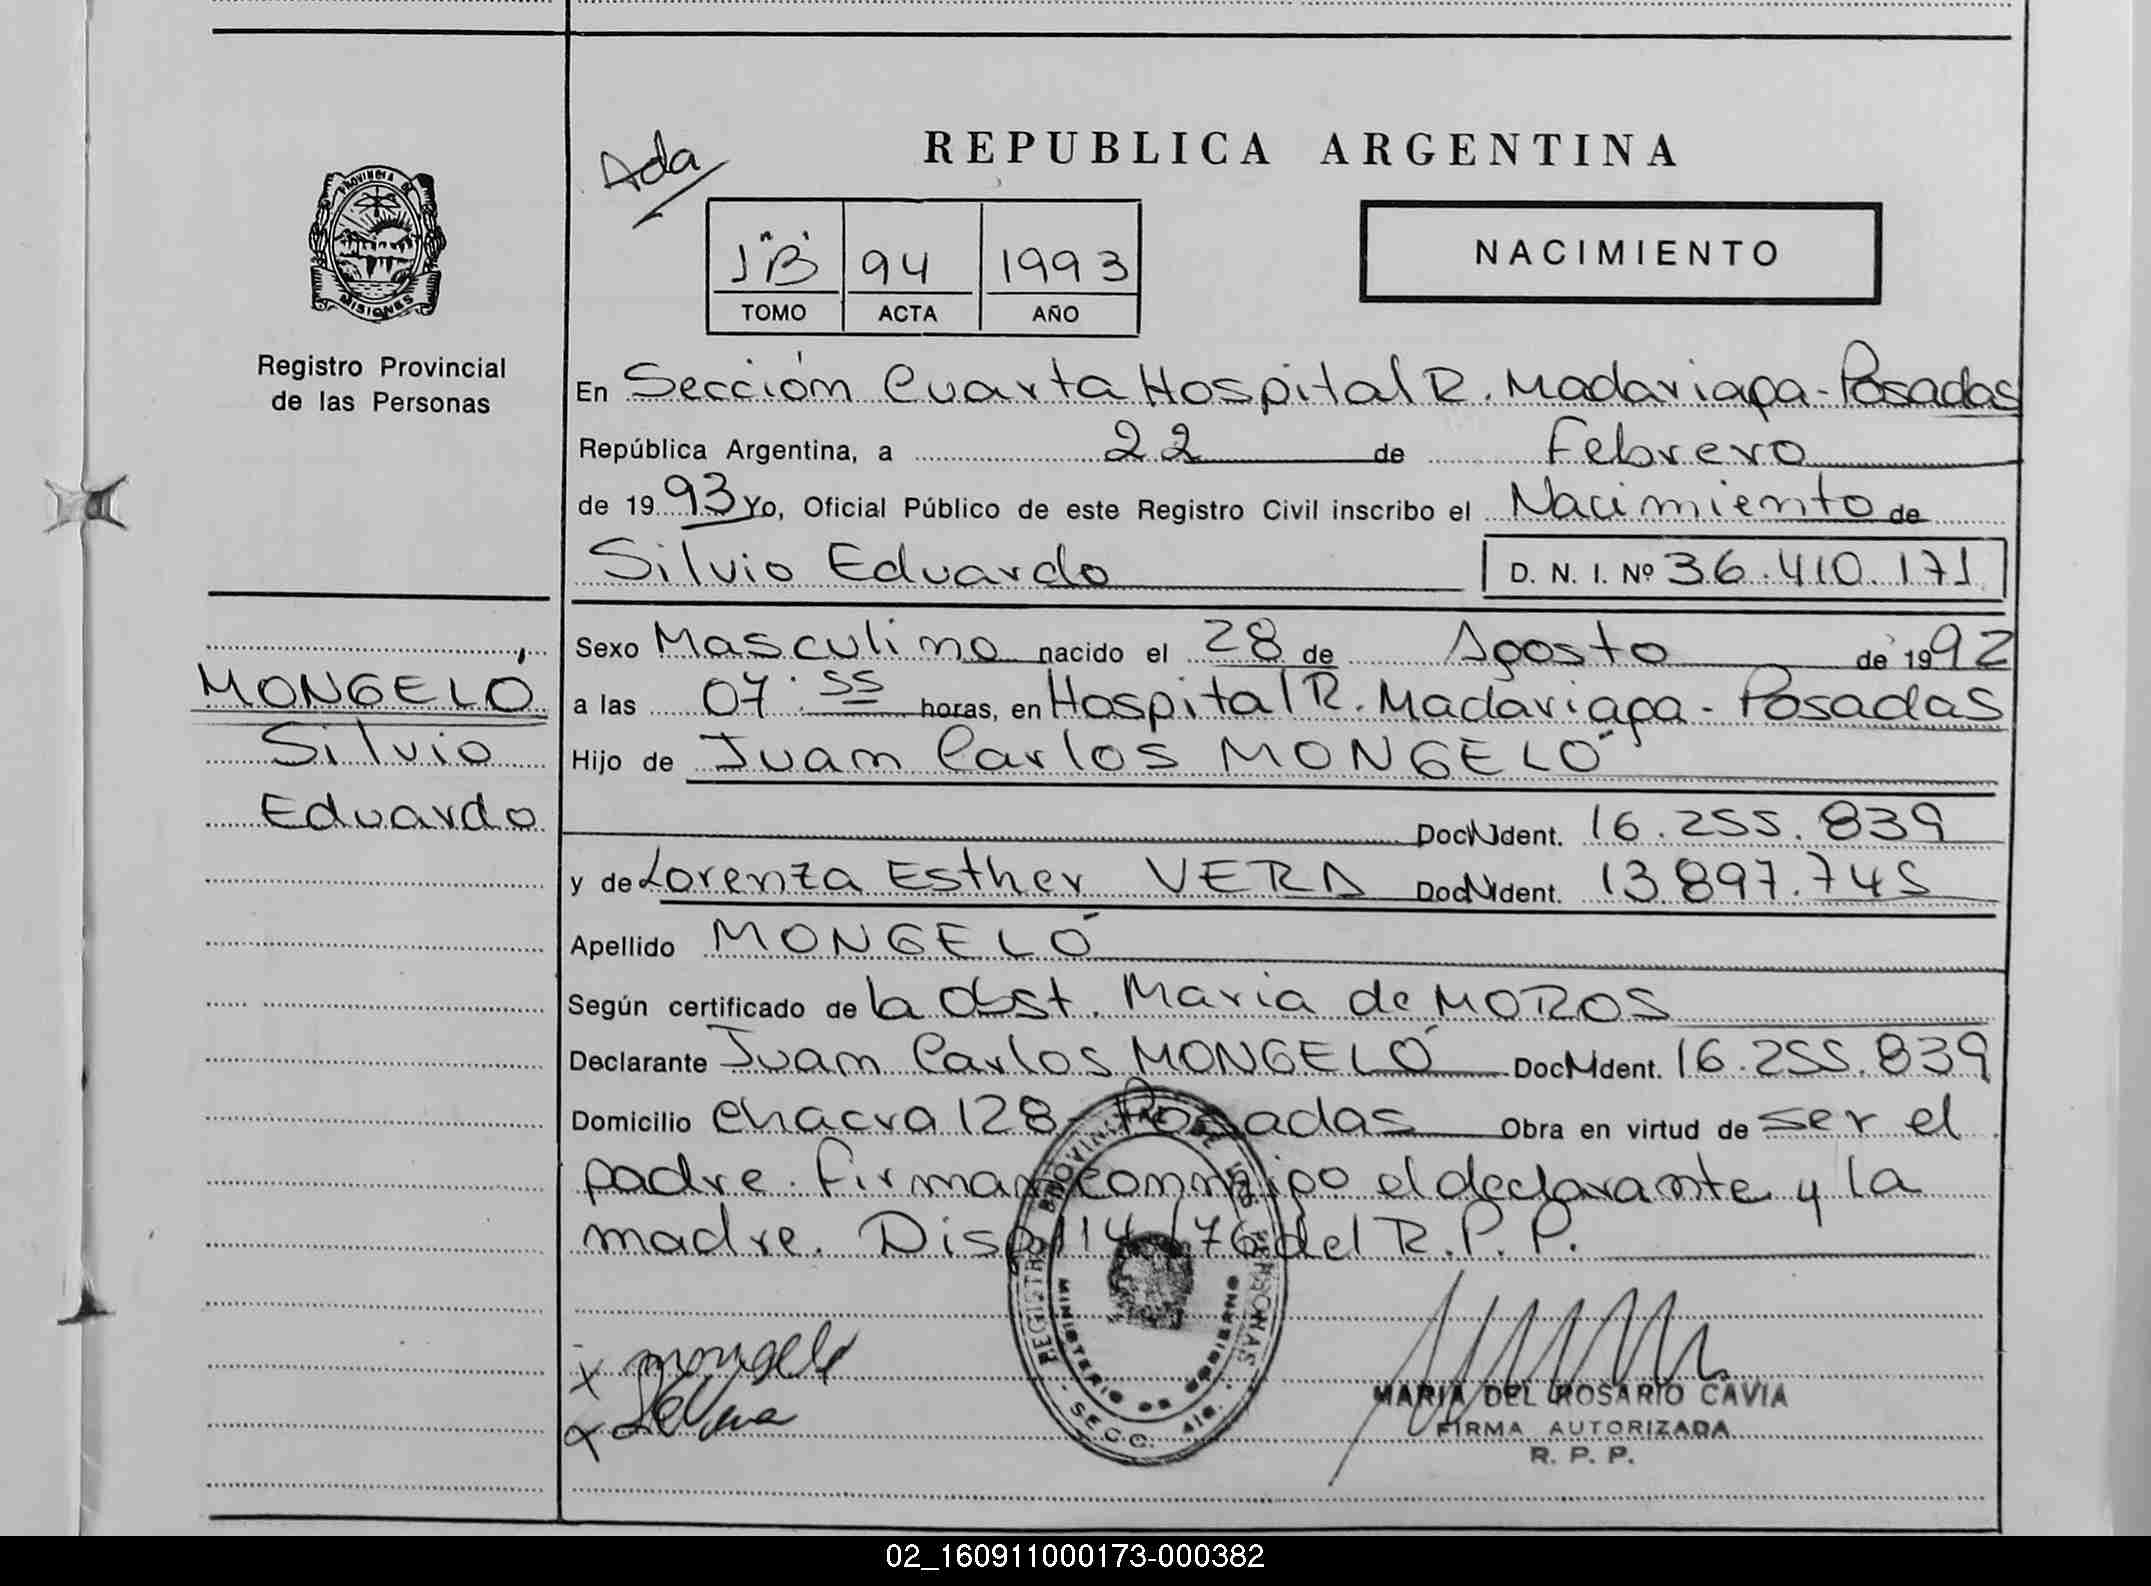 REPUBLICA ARGENTINA
Ada
1"B" 94 1993
TOMO ACTA AÑO
NACIMIENTO
PROVINCIA DE
MISIONES
Registro Provincial
de las Personas
En Sección Cuarta Hospital R. Madariaga - Posadas
República Argentina, a 22 de Febrero
de 1993 Yo, Oficial Público de este Registro Civil inscribo el Nacimiento de
Silvio Eduardo D. N. I. Nº 36.410.171
MONGELÓ
Silvio
Eduardo
Sexo Masculino nacido el 28 de Agosto de 1992
a las 07:55 horas, en Hospital R. Madariaga - Posadas
Hijo de Juan Carlos MONGELÓ
Doc. Ident. 16.255.839
y de Lorenza Esther VERA Doc. Ident. 13.897.745
Apellido MONGELÓ
Según certificado de la Obst. Maria de MOROS
Declarante Juan Carlos MONGELÓ Doc. Ident. 16.255.839
Domicilio Chacra 128 - Posadas Obra en virtud de ser el
padre. Firman conmigo el declarante y la
madre. Disp. 114/76 del R.P.P.
x mongelo
x LEVera
REGISTRO PROVINCIAL DE LAS PERSONAS
MINISTERIO DE GOBIERNO
- SECC. 4ta. -
MARIA DEL ROSARIO CAVIA
FIRMA AUTORIZADA
R. P. P.
02_160911000173-000382